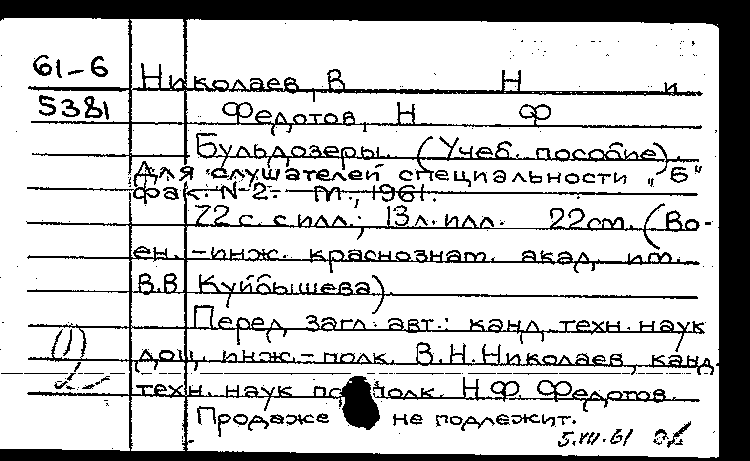 61-6
5381
Николаев, В Н и
Федотов, Н Ф
Бульдозеры. (Учеб. пособие).
Для слушателей специальности "Б"
фак. N-2. М., 1961.
72 с. с илл.; 13 л. илл. 22 см. (Во-
ен.-инж. краснознам. акад. им.
В.В. Куйбышева).
Перед загл. авт.: канд. техн. наук
доц. инж.-полк. В.Н. Николаев, канд.
техн. наук полк. Н.Ф. Федотов.
Продаже не подлежит.
5.VII.61